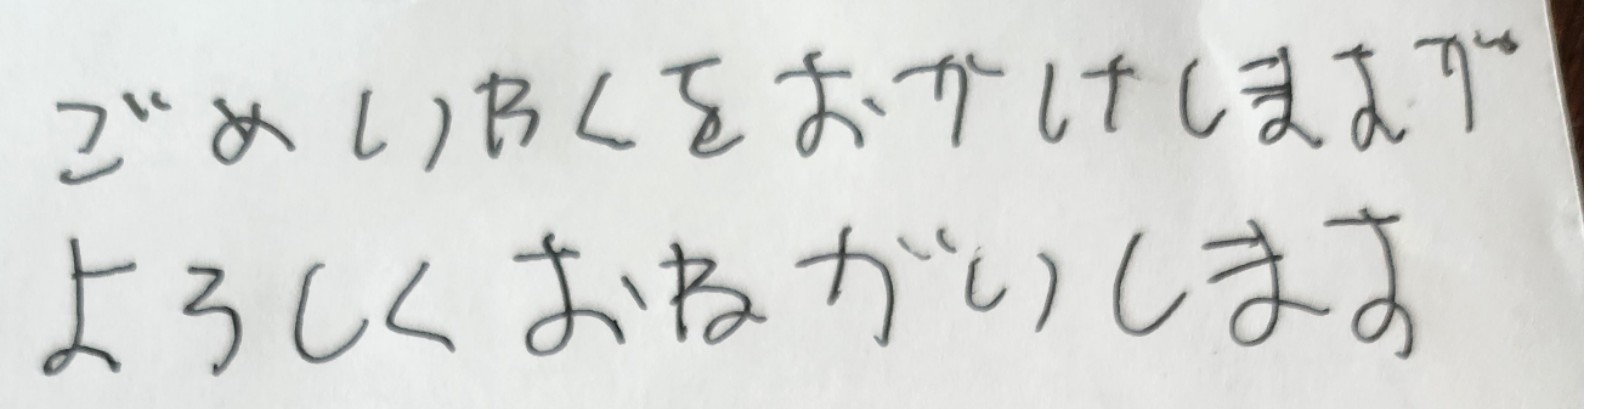 ごめいわくをおかけしますが
よろしくおねがいします